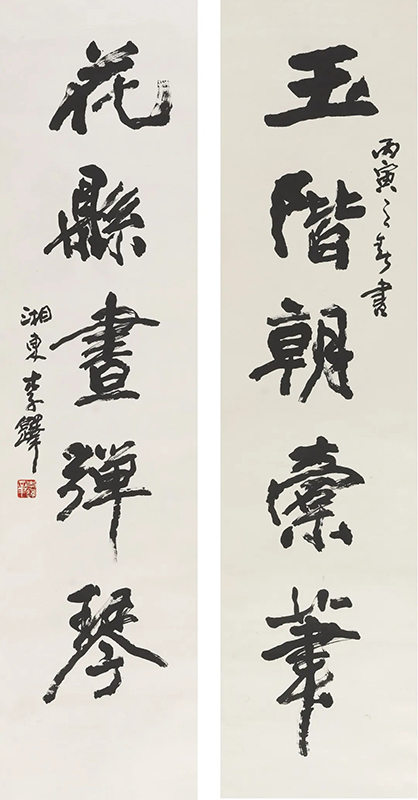 玉階朝橐筆
丙寅之春書
花縣晝彈琴
湘東李鐸